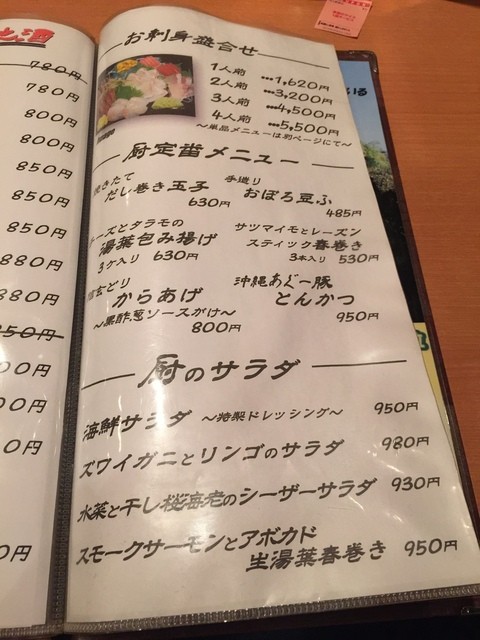 780円
780円
800円
800円
850円
850円
850円
880円
880円
850円
0円
円
お刺身盛合せ
1人前 …1,620円
2人前 …3,200円
3人前 …4,500円
4人前 …5,500円
～単品メニューは別ページにて～
厨定番メニュー
焼きたて
だし巻き玉子
630円
手造り
おぼろ豆ふ
485円
チーズとタラモの
湯葉包み揚げ
3ヶ入り 630円
サツマイモとレーズン
スティック春巻き
3本入り 530円
からあげ
～黒酢葱ソースがけ～
800円
沖縄あぐー豚
とんかつ
950円
厨のサラダ
海鮮サラダ ～特製ドレッシング～ 950円
ズワイガニとリンゴのサラダ 980円
水菜と干し桜海老のシーザーサラダ 930円
スモークサーモンとアボカド
生湯葉春巻き 950円